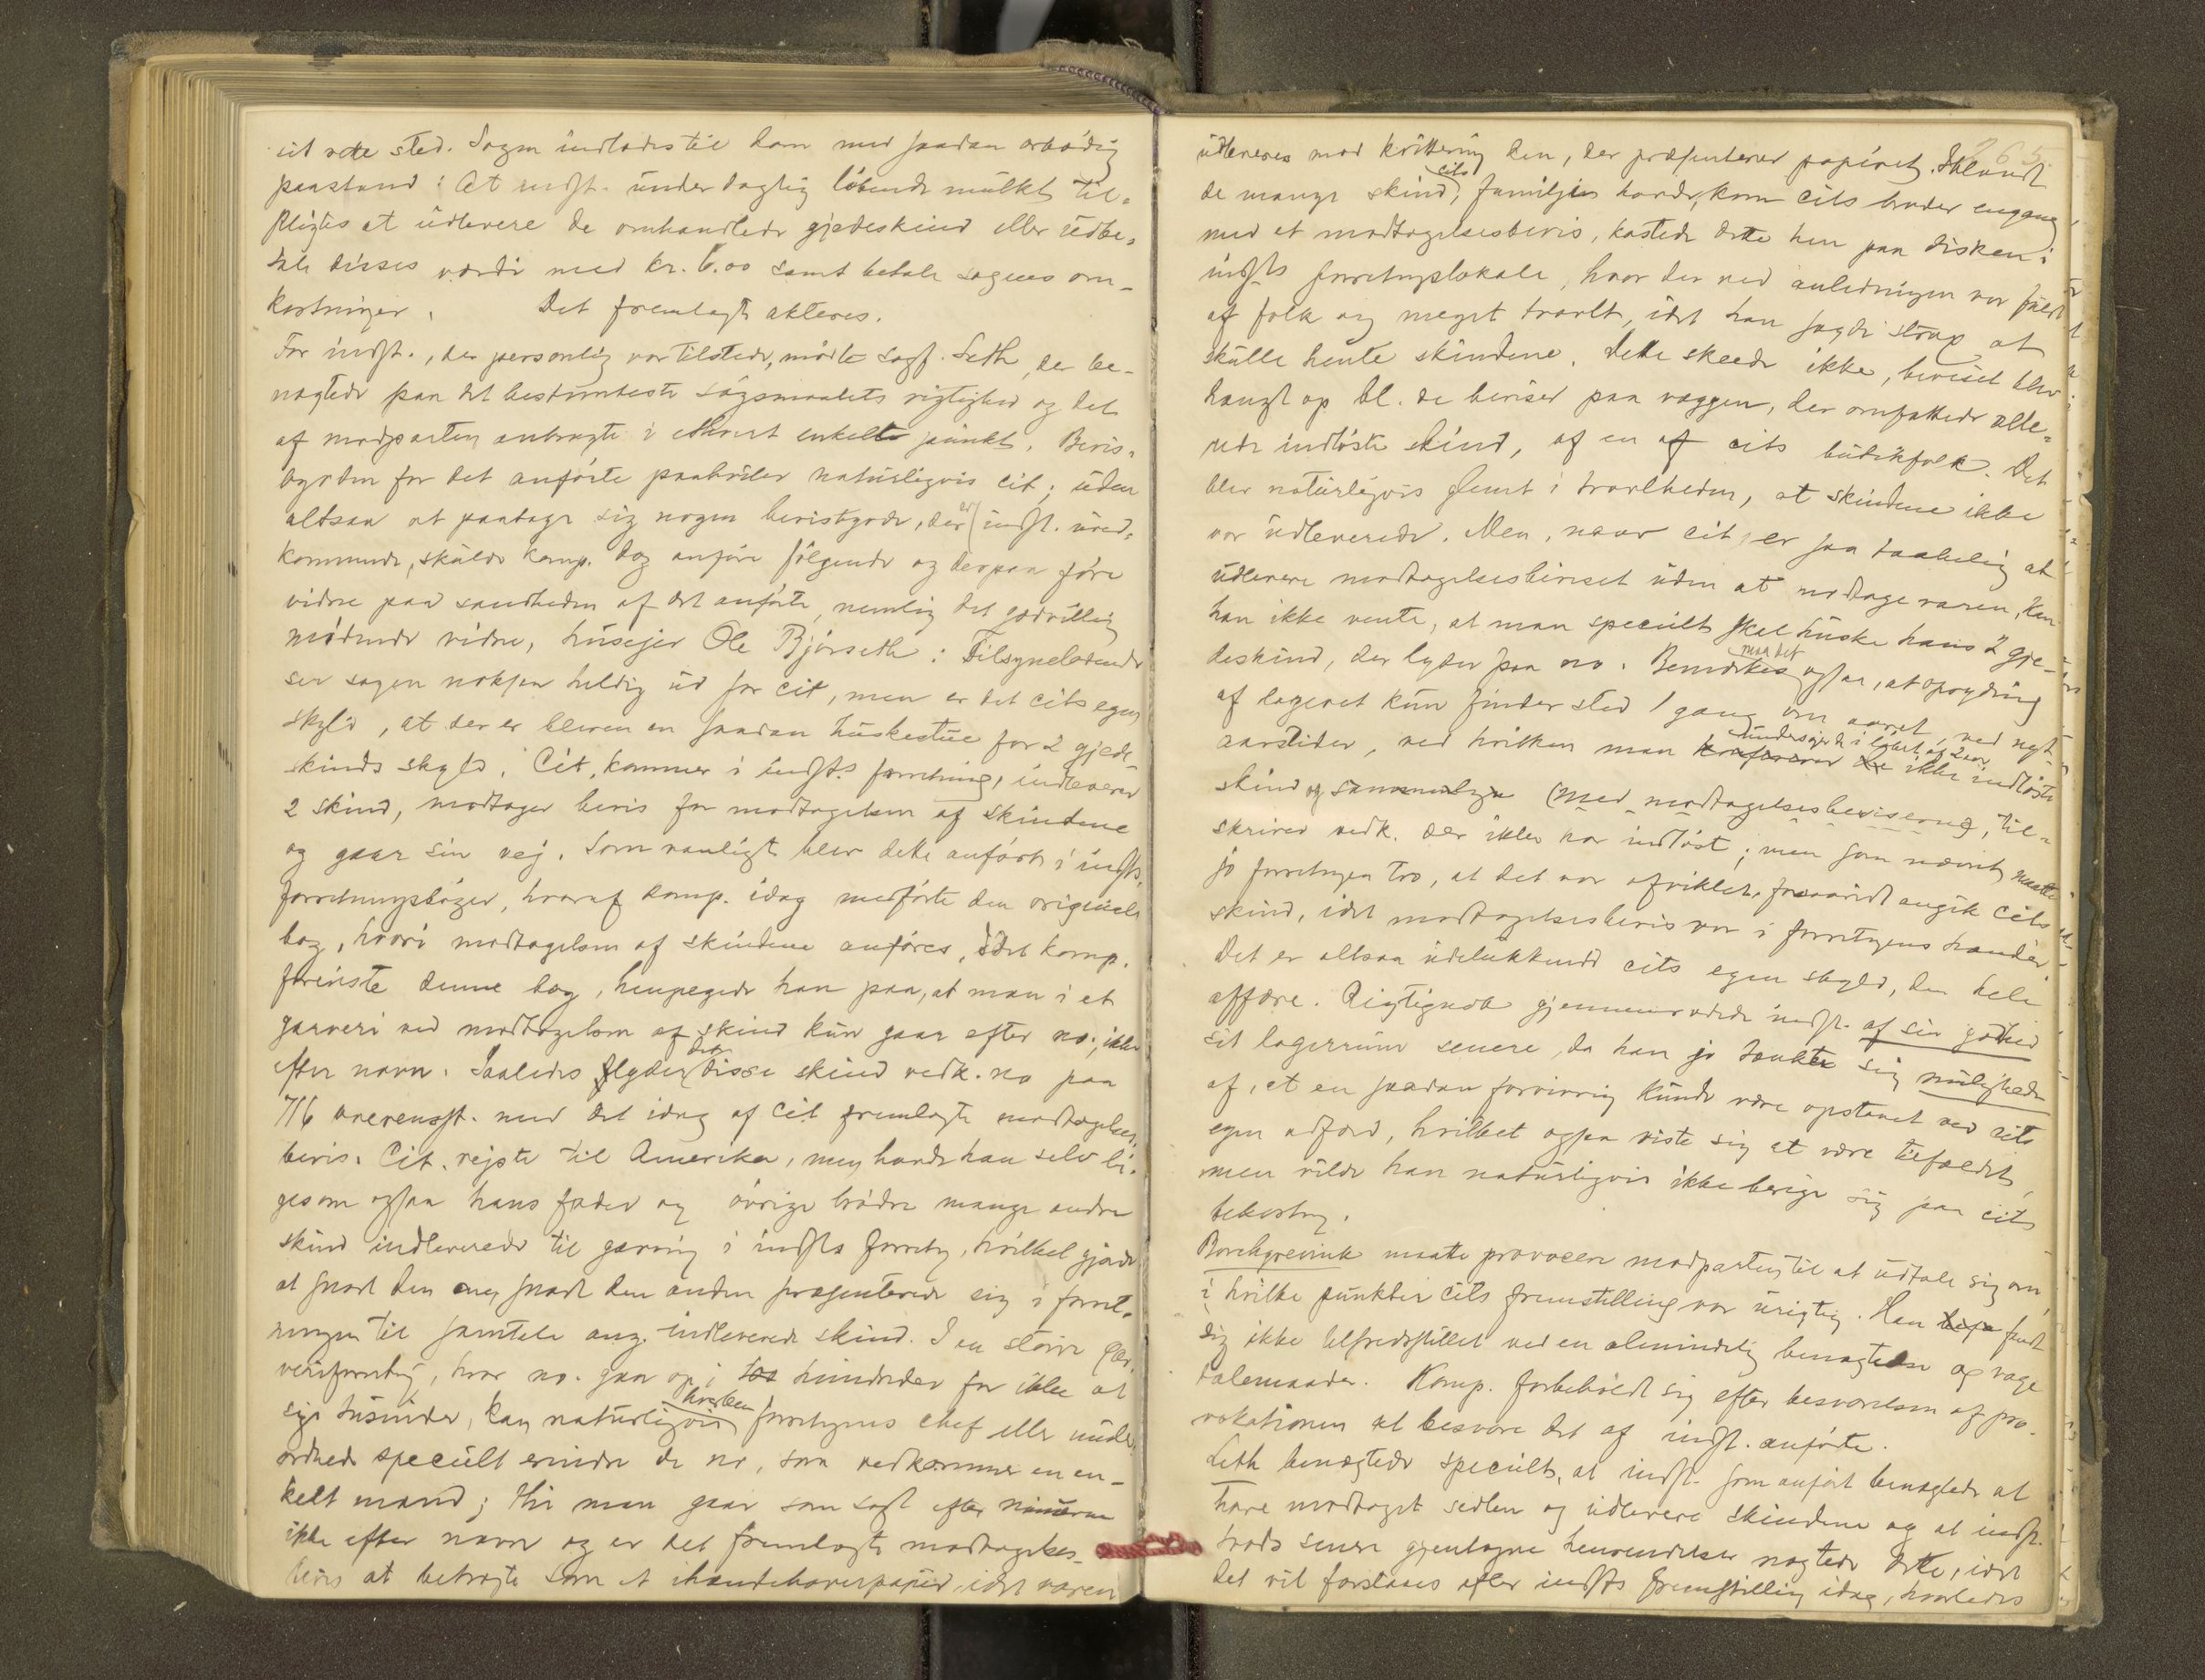 sit rette sted. Sagen indlodes til dom med saadan ærbødig
paastand: At indst. under daglig løbende mulkt til-
pligtes at udlevere de omhandlede gjedeskind eller udbe-
tale disses værdi med kr. 6.00 samt betale sagens om-
kostninger. Det fremlagte akteres.
For indst., der personlig var tilstede, mødte sagf. Leth, der be-
nægtede paa det bestemteste søgsmaalets rigtighed og det
af modparten anbragte i ethvert enkelte punkt. Bevis-
byrden for det anførte paahviler naturligvis cit; uden
altsaa at paatage sig nogen bevisbyrde, der er indst. uved-
kommende, skulde komp. dog anføre følgende og derpaa føre
vidne paa sandheden af det anførte, nemlig det godvillig
mødende vidne, huseier Ole Bjørseth: Tilsyneladende
ser sagen noksaa heldig ud for cit, men er det cits egen
skyld, at der er bleven en saadan huskestue for 2 gjede-
skinds skyld. Cit. kommer i indsts forretning, indleverer
2 skind, modtager bevis for modtagelsen af skindene
og gaar sin vej. Som vanligt blev dette anført i indsts.
forretningsbøger, hvoraf komp. idag medførte den originale
bog, hvori modtagelsen af skindene anføres, idet komp.
foreviste denne bog, henpegede han paa, at man i et
garveri ved modtagelsen af skind kun gaar efter no., ikke
efter navn. Saaledes lyder det disse skind vedk. no paa
716 overensst. med det idag af cit fremlagte modtagelses-
bevis. Cit. rejste til Amerika, men havde han selv li-
gesom ogsaa hans fader og øvrige brødre mange andre
skind indleverede til garving i indsts forretng, hvilket gjorde
at snart den en snart den anden præsenterede sig i forret-
ningen til samtale ang. indleverede skind. I en større gar-
veriforretng, hvor no. gaar op i hundreder for ikke at
sige tusinder, kan naturligvis hverken forretngens chef eller under-
ordnede specielt erindre de no, som vedkommer en en-
kelt mand; thi man gaar som sagt efter numerne
ikke efter navn og er det fremlagte modtagelses-
bevis at betragte som et ihændehaverpapir, idet varen
265.
udleveres mod kvittering den, der præsenterer papiret. Iblandt
de mange skind, cits familjes havde, kom cits broder engang
med et modtagelsesbevis, kastede dette hen paa disken i
indsts forretngslokale, hvor der ved anledningen var fuldt
af folk og meget travlt, idet han sagde strax at
skulle hente skindene. Dette skeede ikke, beviset blev
hængt op bl. de beviser paa væggen, der omfattede alle-
rede indløste skind, af en af cits butikfolk. Det
blev naturligvis glemt i travlheden, at skindene ikke
var udleverede. Men, naar cit, er saa taabelig at
udlevere modtagelsesbeviset uden at modtage varen, kan
han ikke vente, at man specielt skal huske hans 2 gje-
deskind, der lyder paa no. Bemærkes maa det ogsaa, at oprydning
af lageret kun finder sted 1 gang om aaret, ved nyt-
aarstider, ved hvilken man undersøger de i løbet af 2 aar ikke indløste
skind og sammenligne (med modtagelsesbeviserne), til-
skriver vedk. der ikke har indløst; men som nævnt maatte
jo forretngen tro, at det var afviklet, forsaavidt angik cits
skind, idet modtagelsesbevis var i forretngens hænder.
Det er altsaa udelukkende cits egen skyld, den hele
affære. Rigtignok gjennemrodede indst. af sin godhed
sit lagerrum senere, da han jo tænkte sig muligheden
af, at en saadan forvirring kunde være opstaaet ved cits
egen adfærd, hvilket ogsaa viste sig at være tilfældet,
men vilde han naturligvis ikke berige sig paa cits
bekostng.
Borchgrevink maatte provocere modparten til at udtale sig om,
i hvilke punkter cits fremstilling var urigtig. Han fandt
sig ikke tilfredsstillet ved en almindelig benægtelse og vage
talemaader. Komp. forbeholdt sig efter besvarelsen af pro-
vokationen at besvare det af indst. anførte.
Leth benægtede specielt, at indst. som anført benægtede at
have modtaget sedlen og udlevere skindene og at indst.
trods senere gjentagne henvendelser nægtede dette, idet
det vil forstaaes efter indsts fremstilling idag, hvorledes